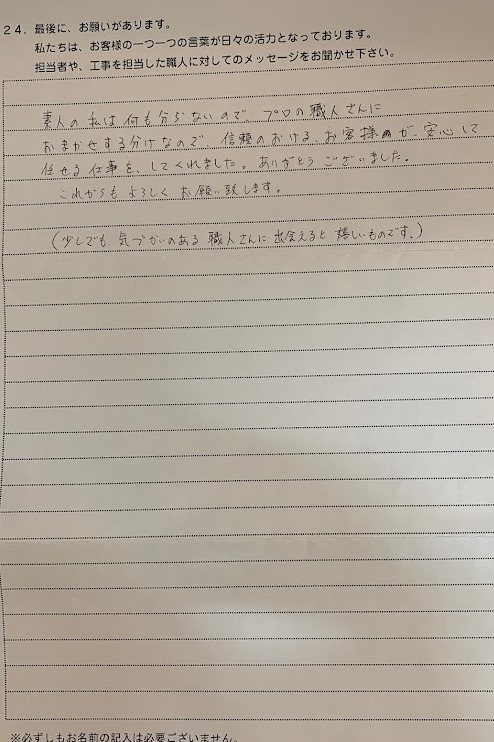 24．最後に、お願いがあります。
私たちは、お客様の一つ一つの言葉が日々の活力となっております。
担当者や、工事を担当した職人に対してのメッセージをお聞かせ下さい。
素人の私は何も分らないので、プロの職人さんに
おまかせする分けなので、信頼のおける、お客様が、安心して
任せる仕事を、してくれました。ありがとうございました。
これからもよろしくお願い致します。
(少しでも、気づかいのある職人さんに出会えると嬉しいものです。)
※必ずしもお名前の記入は必要ございません。